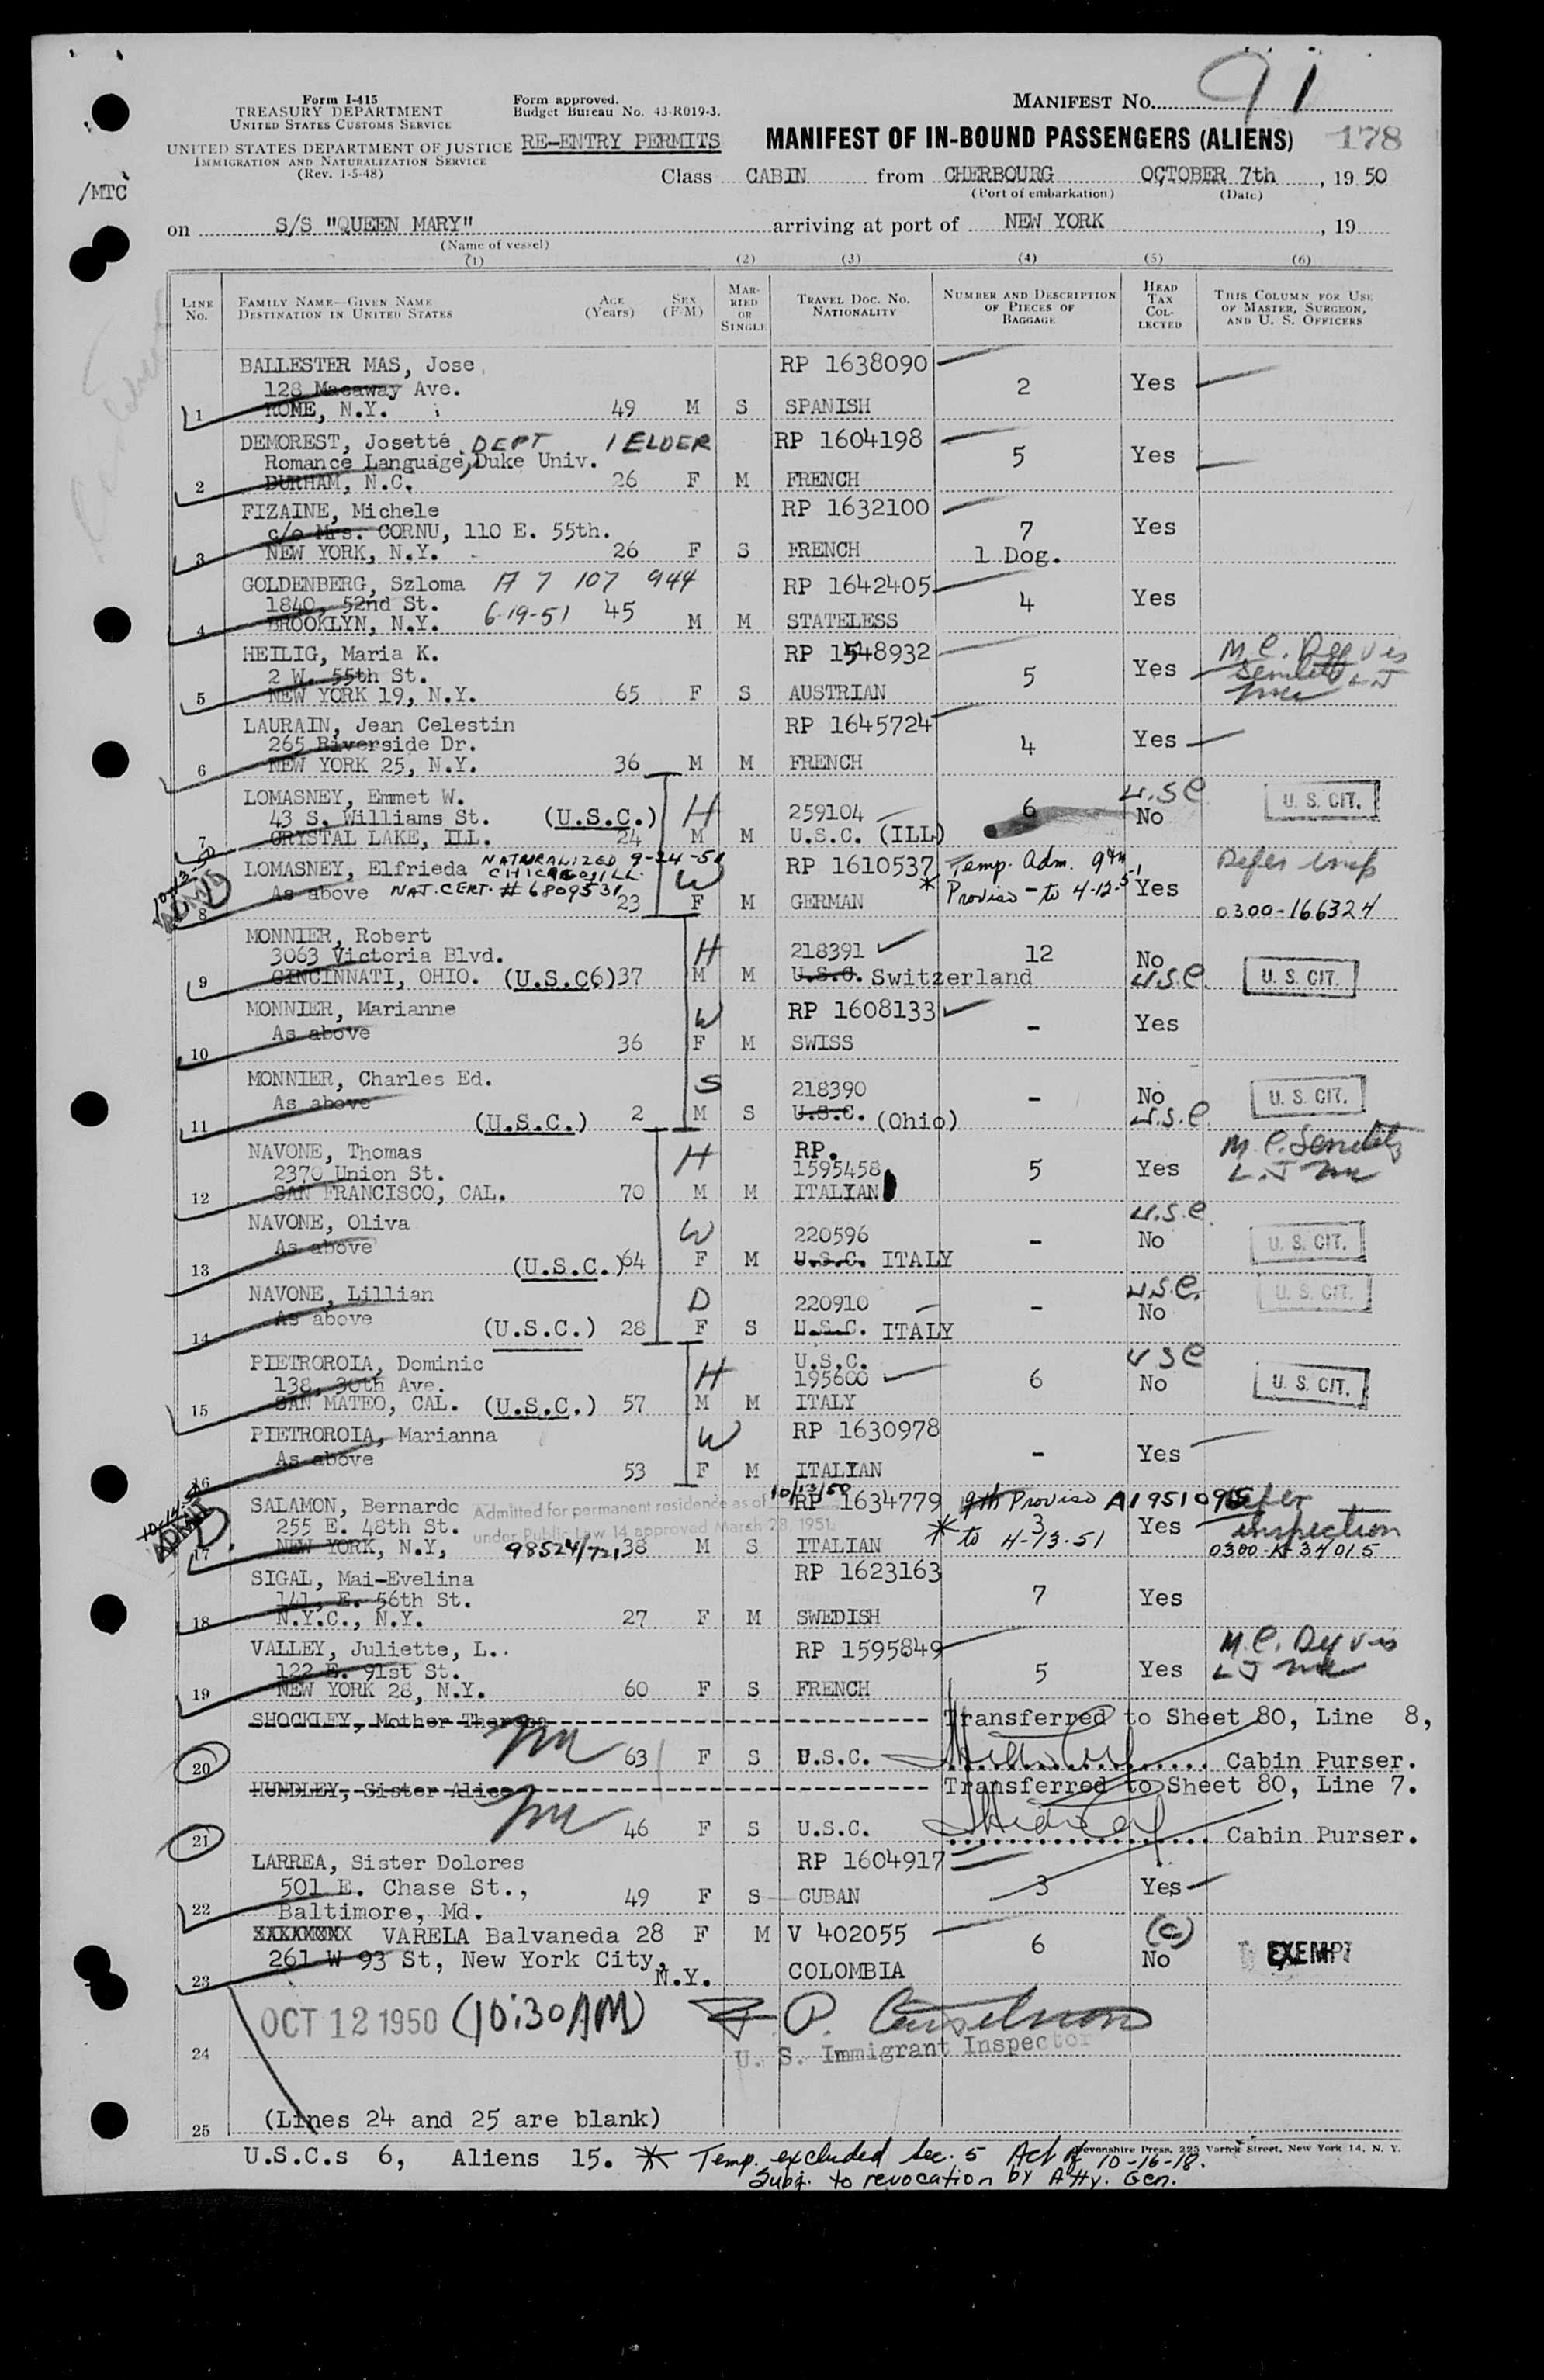 91
Form I-415
TREASURY DEPARTMENT
UNITED STATES CUSTOMS SERVICE
UNITED STATES DEPARTMENT OF JUSTICE
IMMIGRATION AND NATURALIZATION SERVICE
(Rev. 1-5-48)
/MTC
Form approved.
Budget Bureau No. 43-R019-3.
RE-ENTRY PERMITS
MANIFEST NO.
MANIFEST OF IN-BOUND PASSENGERS (ALIENS) 178
Class CABIN from CHERBOURG OCTOBER 7th, 19 50
(Port of embarkation) (Date)
on S/S "QUEEN MARY" arriving at port of NEW YORK, 19
(Name of vessel)
(1) (2) (3) (4) (5) (6)
LINE NO. FAMILY NAME—GIVEN NAME DESTINATION IN UNITED STATES AGE (Years) SEX (F-M) MARRIED OR SINGLE TRAVEL DOC. NO. NATIONALITY NUMBER AND DESCRIPTION OF PIECES OF BAGGAGE HEAD TAX COLLECTED THIS COLUMN FOR USE OF MASTER, SURGEON, AND U. S. OFFICERS
BALLESTER MAS, Jose RP 1638090
128 Macaway Ave. 2 Yes
1 ROME, N.Y. 49 M S SPANISH
DEMOREST, Josette DEPT 1 ELDER RP 1604198
Romance Language, Duke Univ. 5 Yes
2 DURHAM, N.C. 26 F M FRENCH
FIZAINE, Michele RP 1632100
c/o Mrs. CORNU, 110 E. 55th. 7 Yes
3 NEW YORK, N.Y. 26 F S FRENCH 1 Dog.
GOLDENBERG, Szloma A 7 107 944 RP 1642405
1840, 52nd St. 4 Yes
4 BROOKLYN, N.Y. 6-19-51 45 M M STATELESS
HEILIG, Maria K. RP 1548932
2 W. 55th St. 5 Yes
5 NEW YORK 19, N.Y. 65 F S AUSTRIAN
LAURAIN, Jean Celestin RP 1645724
265 Riverside Dr. 4 Yes
6 NEW YORK 25, N.Y. 36 M M FRENCH
LOMASNEY, Emmet W. H U.S.C U. S. CIT.
43 S. Williams St. (U.S.C.) 259104 6 No
7 CRYSTAL LAKE, ILL. 24 M M U.S.C. (ILL)
LOMASNEY, Elfrieda NATURALIZED 9-24-51 W RP 1610537 Temp. Adm. 9th Defer insp
CHICAGO, ILL.
As above NAT. CERT. # 6809531 * Proviso - to 4-12-51 Yes
8 23 F M GERMAN 0300-166324
ADMD
MONNIER, Robert H
3063 Victoria Blvd. 218391 12 No
9 CINCINNATI, OHIO. (U.S.C6) 37 M M U.S.C. Switzerland U.S.C. U. S. CIT.
MONNIER, Marianne W RP 1608133
As above - Yes
10 36 F M SWISS
MONNIER, Charles Ed. S 218390 No
As above - U. S. CIT.
11 (U.S.C.) 2 M S U.S.C. (Ohio) U.S.C.
NAVONE, Thomas H RP.
2370 Union St. 1595458 5 Yes
12 SAN FRANCISCO, CAL. 70 M M ITALIAN
NAVONE, Oliva W 220596 U.S.C.
As above - No U. S. CIT.
13 (U.S.C.) 64 F M U.S.C. ITALY
NAVONE, Lillian D 220910 - U.S.C. U. S. CIT.
As above No
14 (U.S.C.) 28 F S U.S.C. ITALY
PIETROROIA, Dominic H U.S.C. U S C
138, 30th Ave. 195600 6 No U. S. CIT.
15 SAN MATEO, CAL. (U.S.C.) 57 M M ITALY
PIETROROIA, Marianna W RP 1630978
As above - Yes
16 53 F M ITALIAN
SALAMON, Bernardo Admitted for permanent residence as of 10/13/50 RP 1634779 9th Proviso A1951095 Defer
255 E. 48th St. under Public Law 14 approved March 28, 1951. * to 4-13-51 3 Yes inspection
17 NEW YORK, N.Y, 98524/721 38 M S ITALIAN 0300-K-34015
SIGAL, Mai-Evelina RP 1623163
141, E. 56th St. 7 Yes
18 N.Y.C., N.Y. 27 F M SWEDISH
VALLEY, Juliette, L.. RP 1595849
122 E. 91st St. 5 Yes
19 NEW YORK 28, N.Y. 60 F S FRENCH
SHOCKLEY, Mother Theresa Transferred to Sheet 80, Line 8,
20 63 F S U.S.C. Cabin Purser.
HUNDLEY, Sister Alice Transferred to Sheet 80, Line 7.
21 46 F S U.S.C. Cabin Purser.
LARREA, Sister Dolores RP 1604917
501 E. Chase St., 49 F S CUBAN 3 Yes
22 Baltimore, Md.
VARELA Balvaneda 28 F M V 402055 6 (C)
261 W 93 St, New York City, N.Y. COLOMBIA No EXEMPT
23
OCT 12 1950 (10:30 AM)
24 U. S. Immigrant Inspector
25 (Lines 24 and 25 are blank)
Devonshire Press, 225 Varick Street, New York 14, N. Y.
U.S.C.s 6, Aliens 15. * Temp. excluded Sec. 5 Act of 10-16-18.
Subj. to revocation by Atty. Gen.